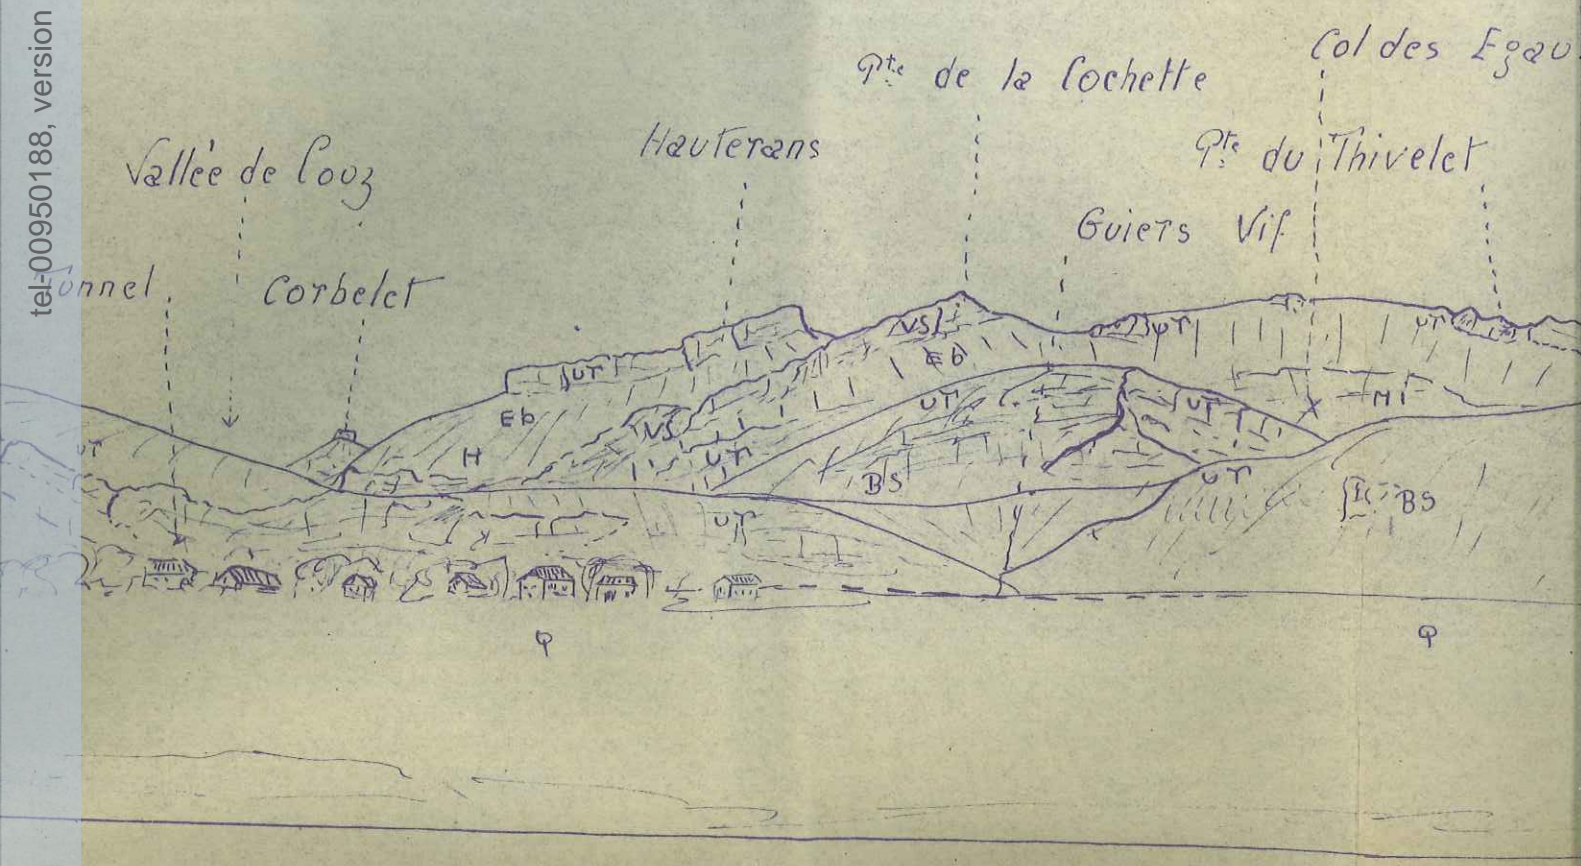 tel-00950188, version
Col des Egau
Pte de la Cochette
Hauterans
Pte du Thivelet
Vallée de Couz
Guiers Vif
Tunnel
Corbelet
VS
Ur
Ur
Ur
Eb
Eb
Ur
Ur
Mi
Ur
VS
Ur
H
Ur
BS
Ur
BS
Ur
Q
Q